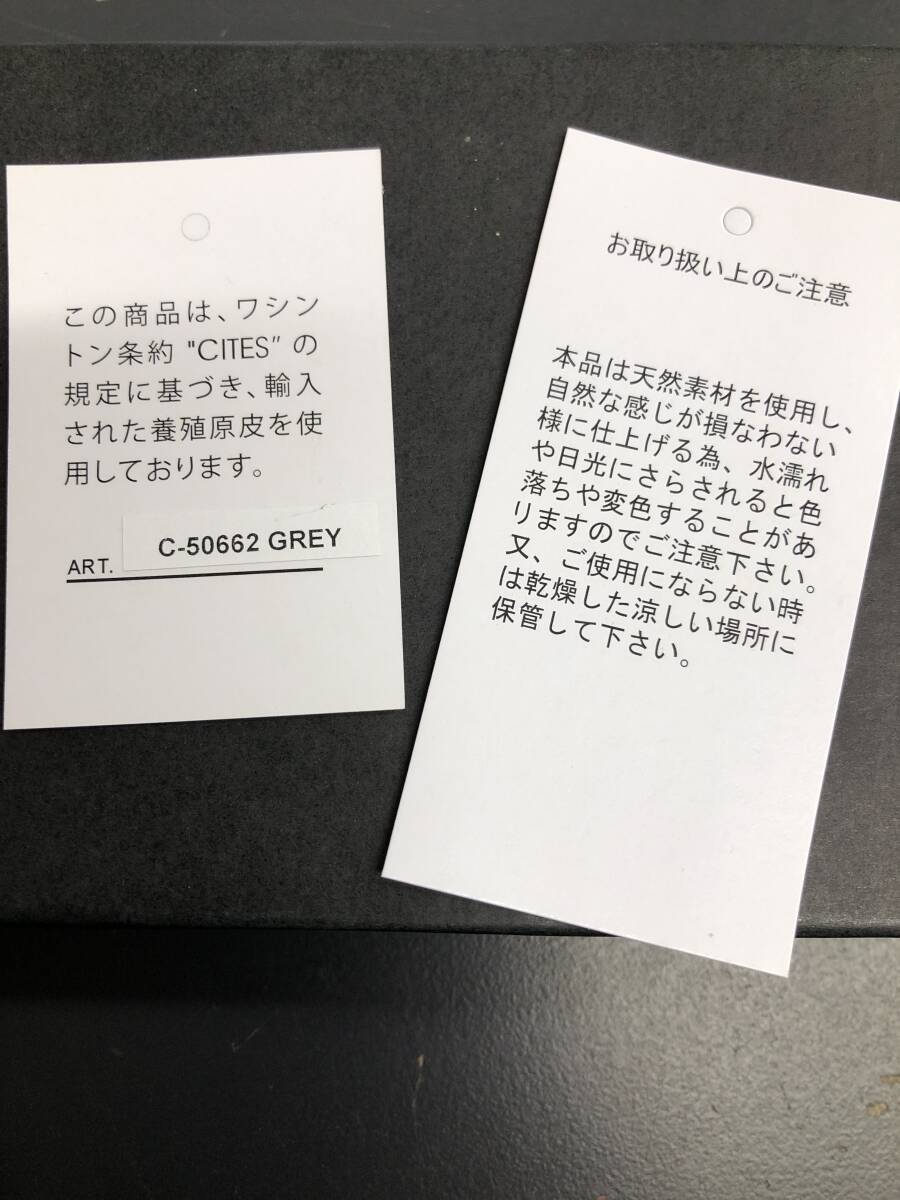 この商品は、ワシン
トン条約 "CITES” の
規定に基づき、輸入
された養殖原皮を使
用しております。
ART. C-50662 GREY
お取り扱い上のご注意
本品は天然素材を使用し、
自然な感じが損なわない
様に仕上げる為、水濡れ
や日光にさらされると色
落ちや変色することがあ
りますのでご注意下さい。
又、ご使用にならない時
は乾燥した涼しい場所に
保管して下さい。